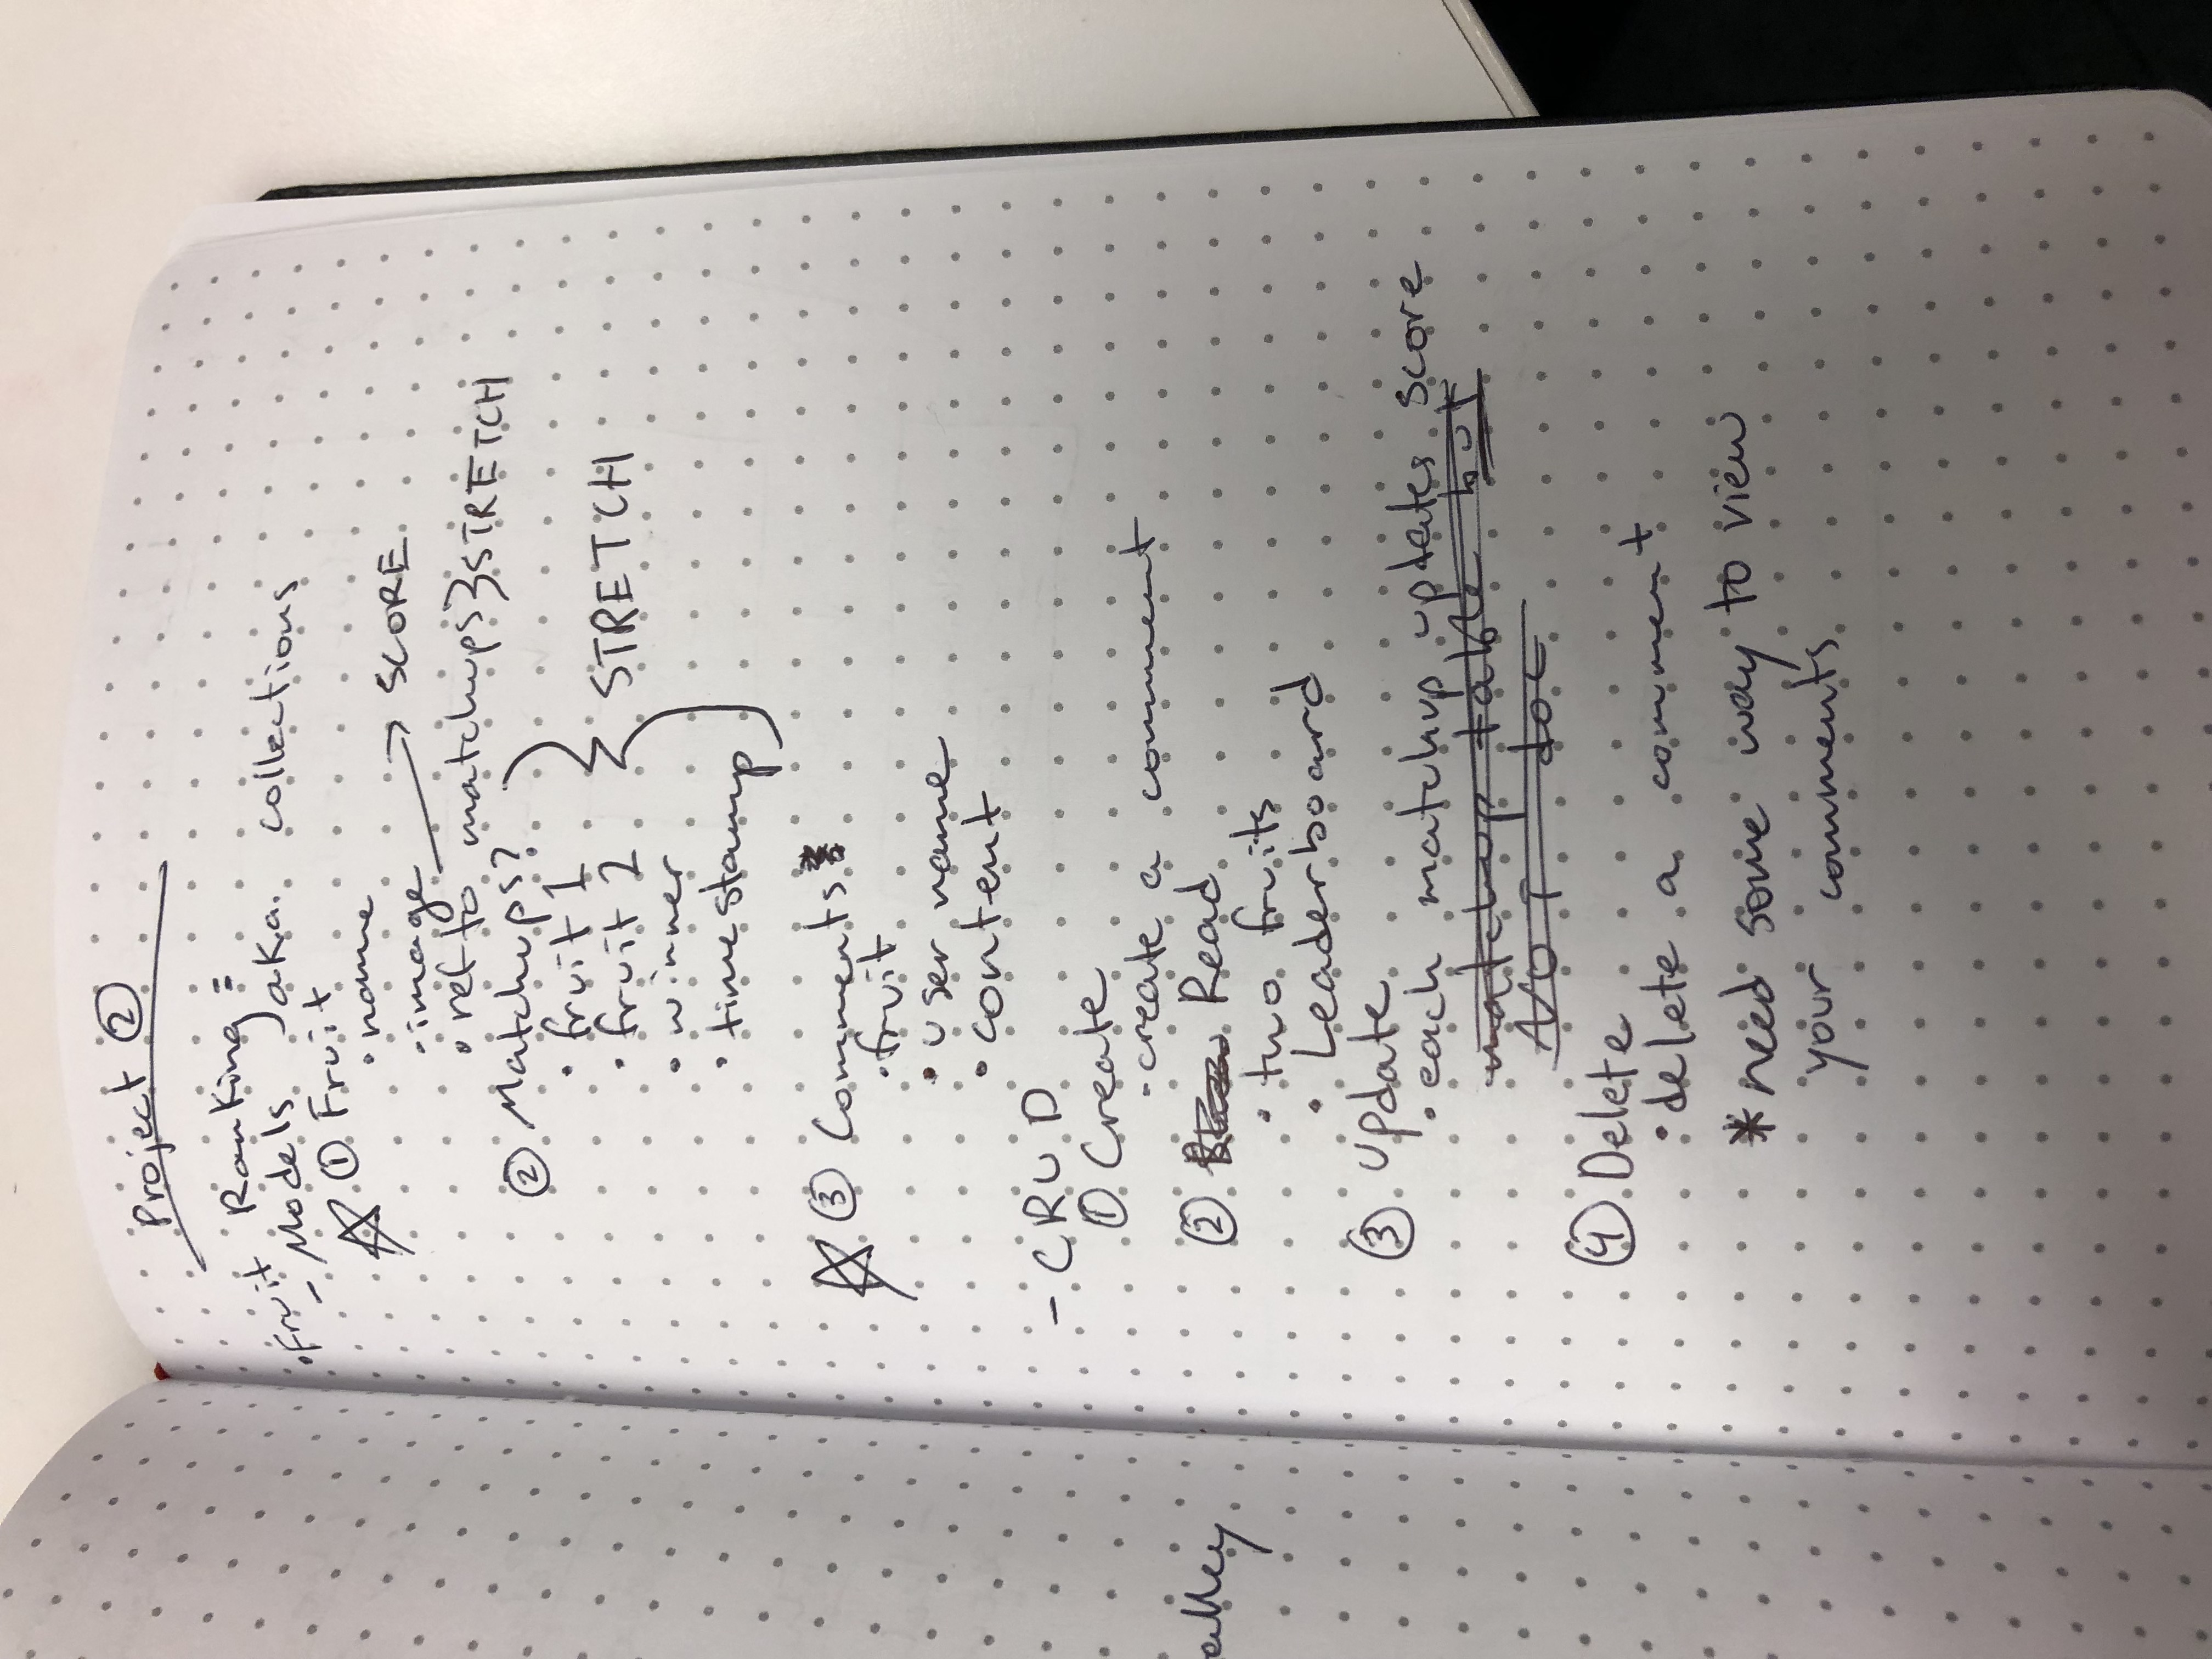 Project ②
• Fruit Ranking =
- Models aka. collections
☆ ① Fruit
• name
• image → SCORE
• ref to matchups } STRETCH
② Matchups?
• fruit 1
• fruit 2 } STRETCH
• winner
• timestamp
☆ ③ Comments
• fruit
• user name
• content
- CRUD
① Create
- create a comment
② Read
• two fruits
• Leaderboard
③ Update
• each matchup updates score
matchup table but
NOT doc
④ Delete
• delete a comment
* need some way to view
your comments